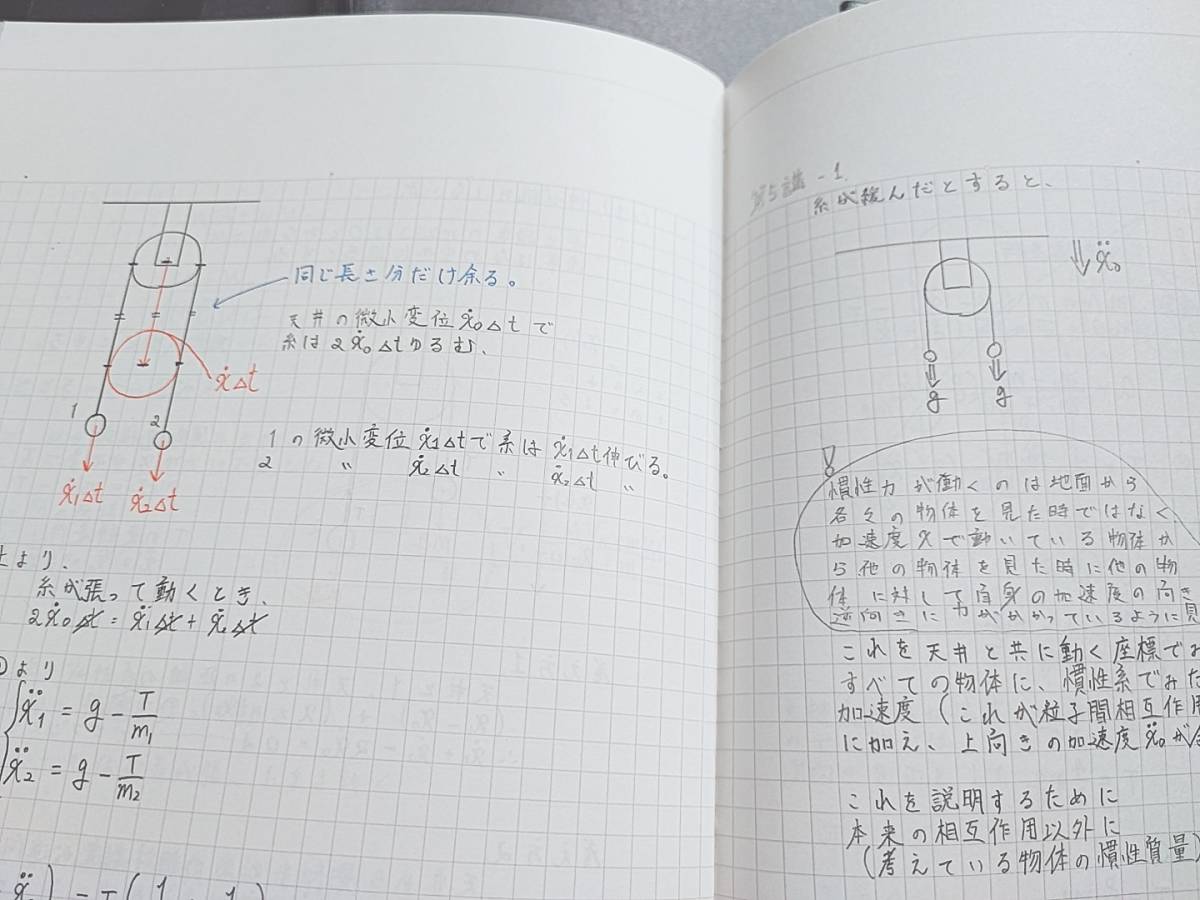 同じ長さ分だけ余る。
天井の微小変位 ẋ₀Δt で
糸は2ẋ₀Δtゆるむ、
ẋΔt
1
2
ẋ₁Δt ẋ₂Δt
1の微小変位 ẋ₁Δtで糸は ẋ₁Δt伸びる。
2 〃 ẋ₂Δt 〃 ẋ₂Δt 〃
上より.
糸が張って動くとき、
2ẋ₀Δt = ẋ₁Δt + ẋ₂Δt
より
ẍ₁ = g - T/m₁
ẍ₂ = g - T/m₂
第5講 - 1.
糸が緩んだとすると、
ẍ₀
g g
慣性力が働くのは地面から
各々の物体を見た時ではなく
加速度ẍで動いている物体か
ら他の物体を見た時に他の物
体に対して自身の加速度の向き
逆向きに力がかかっているように見
これを天井と共に動く座標でみ
すべての物体に、慣性系でみた
加速度(これが粒子間相互作用
に加え、上向きの加速度ẍ₀が
これを説明するために
本来の相互作用以外に
(考えている物体の慣性質量)